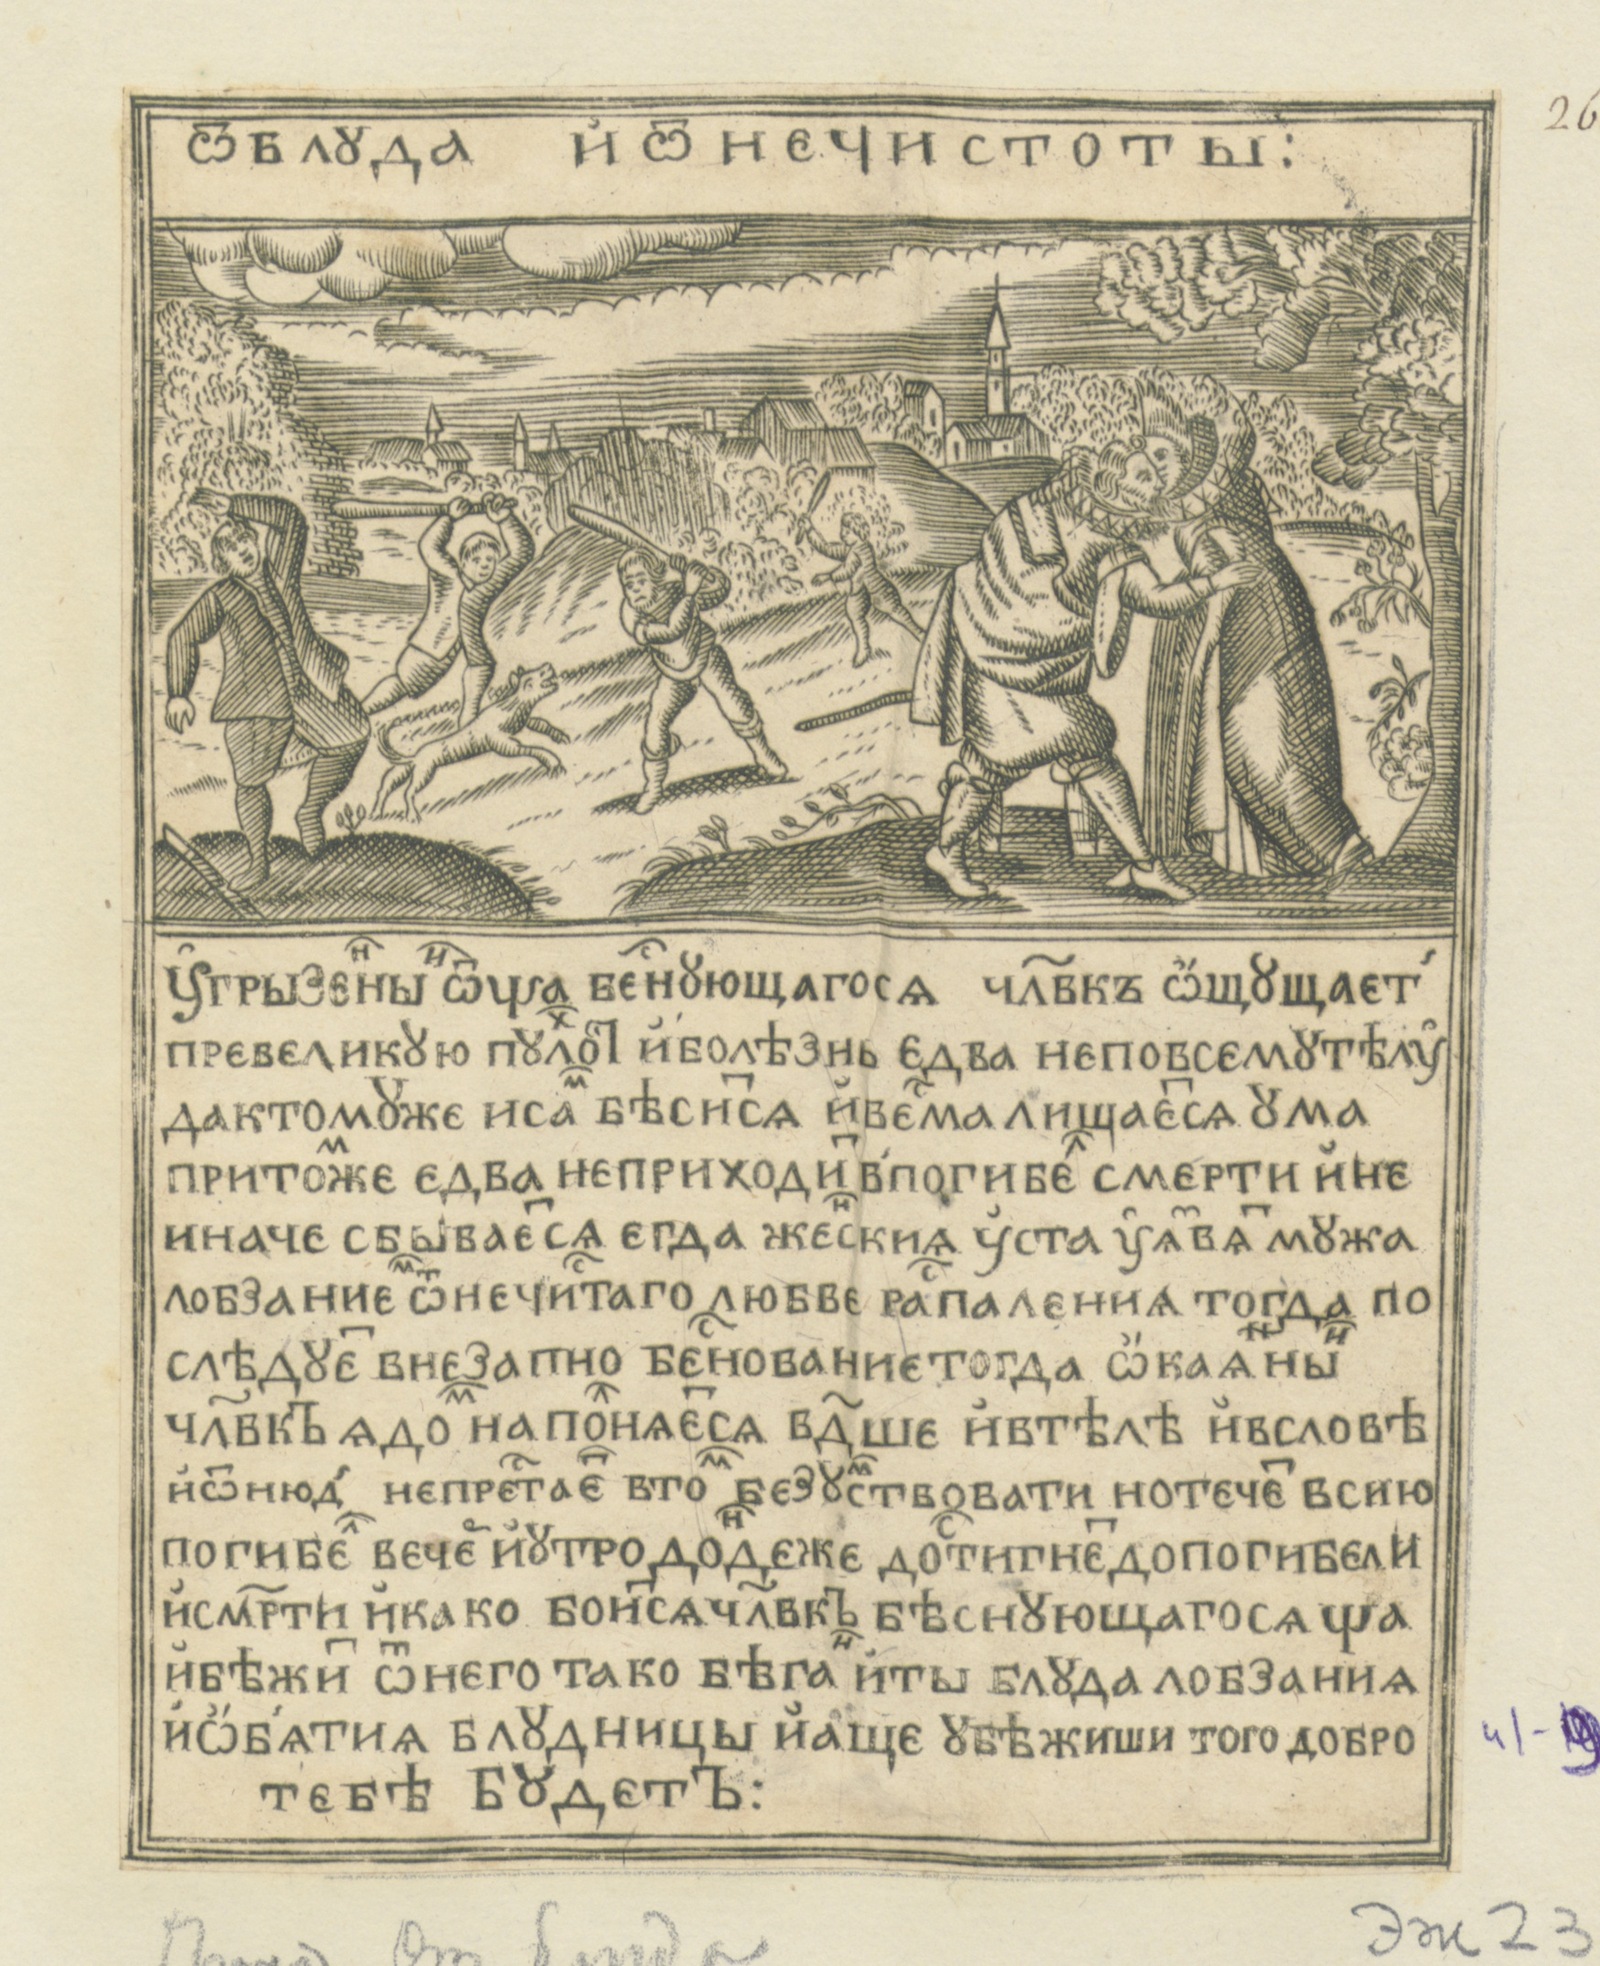 ѾБЛꙊДА И҆ѾНЕЧИСТОТЫ:
26
ᲂУ҆ГРЫЗЕⷩ҇НЫⷻ҇ Ѿѱа БЕⷭ҇НꙊЮЩАГОСѦ ЧЛ҃ВКЪ Ѡ҆ЩꙊЩАЕТ̾
ПРЕВЕЛИКꙊЮ ПꙊЛОⷯ҇Ї И҆БОЛѢЗНЬ ЕДВА НЕПОВСЕМꙊТѢЛꙊ
ДАКТОМꙊЖЕ ИСАⷨ БѢСИⷮСѦ И҆ВЕСⷭ҇МА ЛИЩАЕⷮСѦ ꙊМА
ПРИТОⷨЖЕ ЕДВА НЕПРИХОДИⷮ В̾ПОГИБЕⷧ СМЕРТИ И҆НЕ
ИНАЧЕ СБЫВАЕⷮСѦ ЕГДА ЖЕⷩСКИѦ ᲂУ҆СТА ᲂУ҆Ѧ҆ВѦⷮ МꙊЖА
ЛОБЗАНИЕⷨ ѾНЕЧИⷭ҇ТАГО ЛЮБВЕ РАⷭ҇ПАЛЕНИѦ ТОГДА ПО
СЛѢДꙊЕⷮ ВНЕЗАПНО БЕⷭ҇НОВАНИЕ ТОГДА Ѡ҆КАѦⷩНЫⷻ
ЧЛ҃ВКЪ ѦДОⷨ НАПОⷧНѦЕⷮСѦ ВД҃ШЕ И҆ВТѢЛѢ И҆ВСЛОВѢ
И҆ѾНЮД̾ НЕПРЕⷭ҇ТАЕⷮ ВТОⷨ БЕЗꙊⷨСТВОВАТИ НОТЕЧЕⷮ ВСИЮ
ПОГИБЕⷧ ВЕЧЕ И҆ꙊТРО ДОⷩДЕЖЕ ДОⷭ҇ТИГНЕⷮ ДОПОГИБЕЛИ
И҆СМР҃ТИ И҆КАКО БОИⷮСѦ ЧЛ҃ВКЪ БѢСНꙊЮЩАГОСѦ ѰА
И҆БѢЖИⷮ ѾНЕГО ТАКО БѢГАⷻ И҆ТЫ БЛꙊДА ЛОБЗАНИѦ
И҆Ѡ҆Б̾ѦТИѦ БЛꙊДНИЦЫ И҆АЩЕ ꙊБѢЖИШИ ТОГО ДОБРО
ТЕБѢ БꙊДЕТЪ:
От блуда
Эж 23